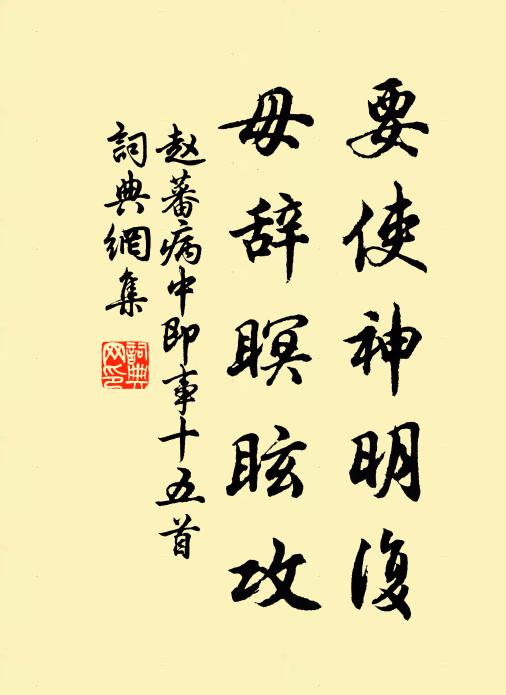 要使神明復
毋辞瞑眩攻
赵蕃病中即事十五首
詞典網集
詞典網印